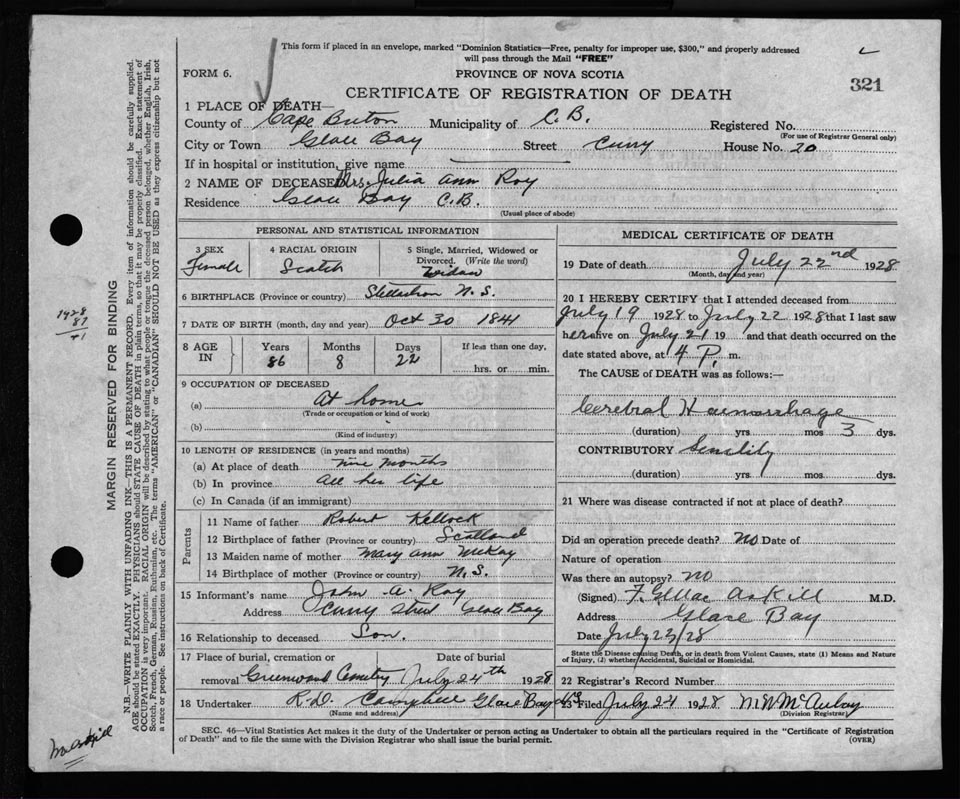 This form if placed in an envelope, marked "Dominion Statistics—Free, penalty for improper use, $300," and properly addressed
will pass through the Mail "FREE"
FORM 6.
PROVINCE OF NOVA SCOTIA
321
CERTIFICATE OF REGISTRATION OF DEATH
1 PLACE OF DEATH—
County of Cape Breton Municipality of C.B. Registered No.
(For use of Registrar General only)
City or Town Glace Bay Street Curry House No. 20
If in hospital or institution, give name
2 NAME OF DECEASED Mrs. Julia Ann Roy
Residence Glace Bay C.B.
(Usual place of abode)
PERSONAL AND STATISTICAL INFORMATION
3 SEX
Female
4 RACIAL ORIGIN
Scotch
5 Single, Married, Widowed or
Divorced. (Write the word)
Widow
6 BIRTHPLACE (Province or country) N.S.
7 DATE OF BIRTH (month, day and year) Oct 30 1841
8 AGE IN
Years Months Days If less than one day,
86 8 22 hrs. or min.
9 OCCUPATION OF DECEASED
(a) At home
(Trade or occupation or kind of work)
(b)
(Kind of industry)
10 LENGTH OF RESIDENCE (in years and months)
(a) At place of death nine months
(b) In province all her life
(c) In Canada (if an immigrant)
Parents
11 Name of father Robert Kellock
12 Birthplace of father (Province or country) Scotland
13 Maiden name of mother Mary Ann McKay
14 Birthplace of mother (Province or country) N.S.
15 Informant's name John A. Roy
Address Curry Street Glace Bay
16 Relationship to deceased Son.
17 Place of burial, cremation or Date of burial
removal Greenwood Cemetery July 24th 1928
18 Undertaker Campbell Glace Bay
(Name and address)
MEDICAL CERTIFICATE OF DEATH
19 Date of death July 22nd 1928
(Month, day and year)
20 I HEREBY CERTIFY that I attended deceased from
July 19 1928 to July 22 1928 that I last saw
her alive on July 21 19 and that death occurred on the
date stated above, at 4 P. m.
The CAUSE of DEATH was as follows:—
Cerebral Haemorrhage
(duration) yrs mos 3 dys.
CONTRIBUTORY Senility
(duration) yrs. mos dys.
21 Where was disease contracted if not at place of death?
Did an operation precede death? No Date of
Nature of operation
Was there an autopsy? no
(Signed) MacAskill M.D.
Address Glace Bay
Date July 23/28
State the Disease causing Death, or in death from Violent Causes, state (1) Means and Nature
of Injury, (2) whether Accidental, Suicidal or Homicidal.
22 Registrar's Record Number
23 Filed July 24 1928
(Division Registrar)
SEC. 46—Vital Statistics Act makes it the duty of the Undertaker or person acting as Undertaker to obtain all the particulars required in the "Certificate of Registration
of Death" and to file the same with the Division Registrar who shall issue the burial permit. (OVER)
MARGIN RESERVED FOR BINDING
N.B.—WRITE PLAINLY WITH UNFADING INK—THIS IS A PERMANENT RECORD. Every item of information should be carefully supplied.
AGE should be stated EXACTLY. PHYSICIANS should STATE CAUSE OF DEATH in plain terms, so that it may be properly classified. Exact statement of
OCCUPATION is very important. RACIAL ORIGIN will be described by stating to what people or tongue the deceased person belonged, whether English, Irish,
Scotch, French, German, Russian, Ruthenian, etc. The terms "AMERICAN" or "CANADIAN" SHOULD NOT BE USED as they express citizenship but not
a race or people. See instructions on back of Certificate.
1928
87
41